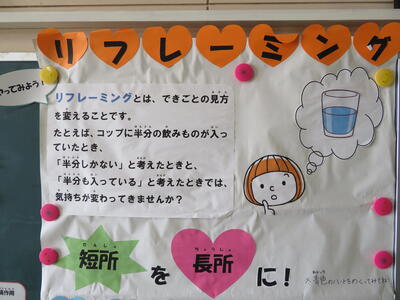 リフレーミング
やってみよう!
リフレーミングとは、できごとの見方
を変えることです。
たとえば、コップに半分の飲みものが入っ
ていたとき、
「半分しかない」と考えたときと、
「半分も入っている」と考えたときでは、
気持ちが変わってきませんか?
短所を長所に!